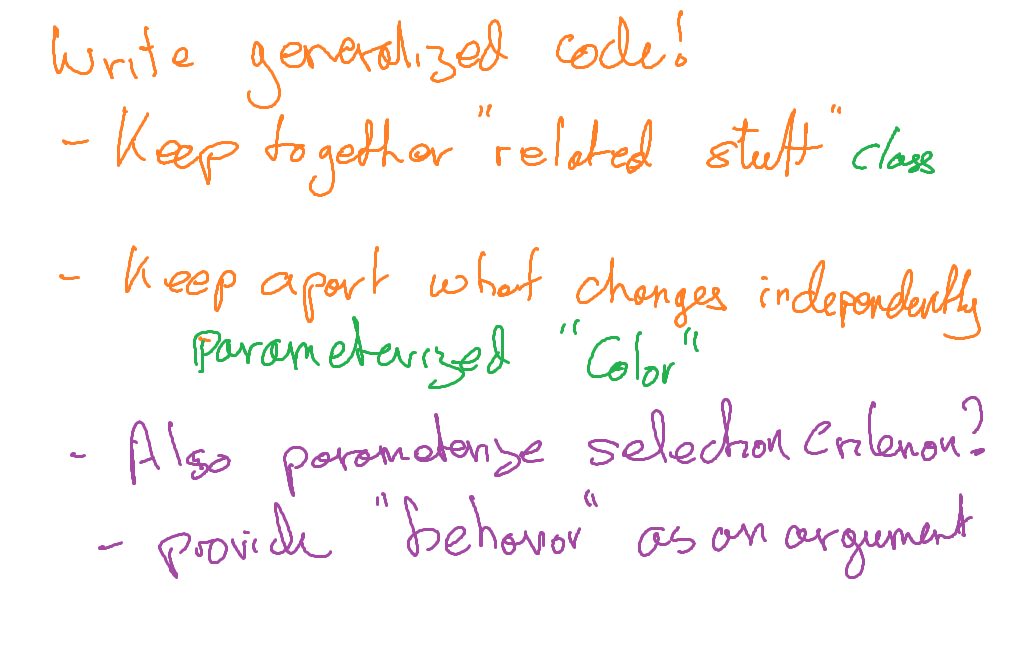 Write generalized code!
- Keep together "related stuff" class
- Keep apart what changes independently
parameterized "Color"
- Also parameterize selection criterion?
- provide "behavior" as an argument